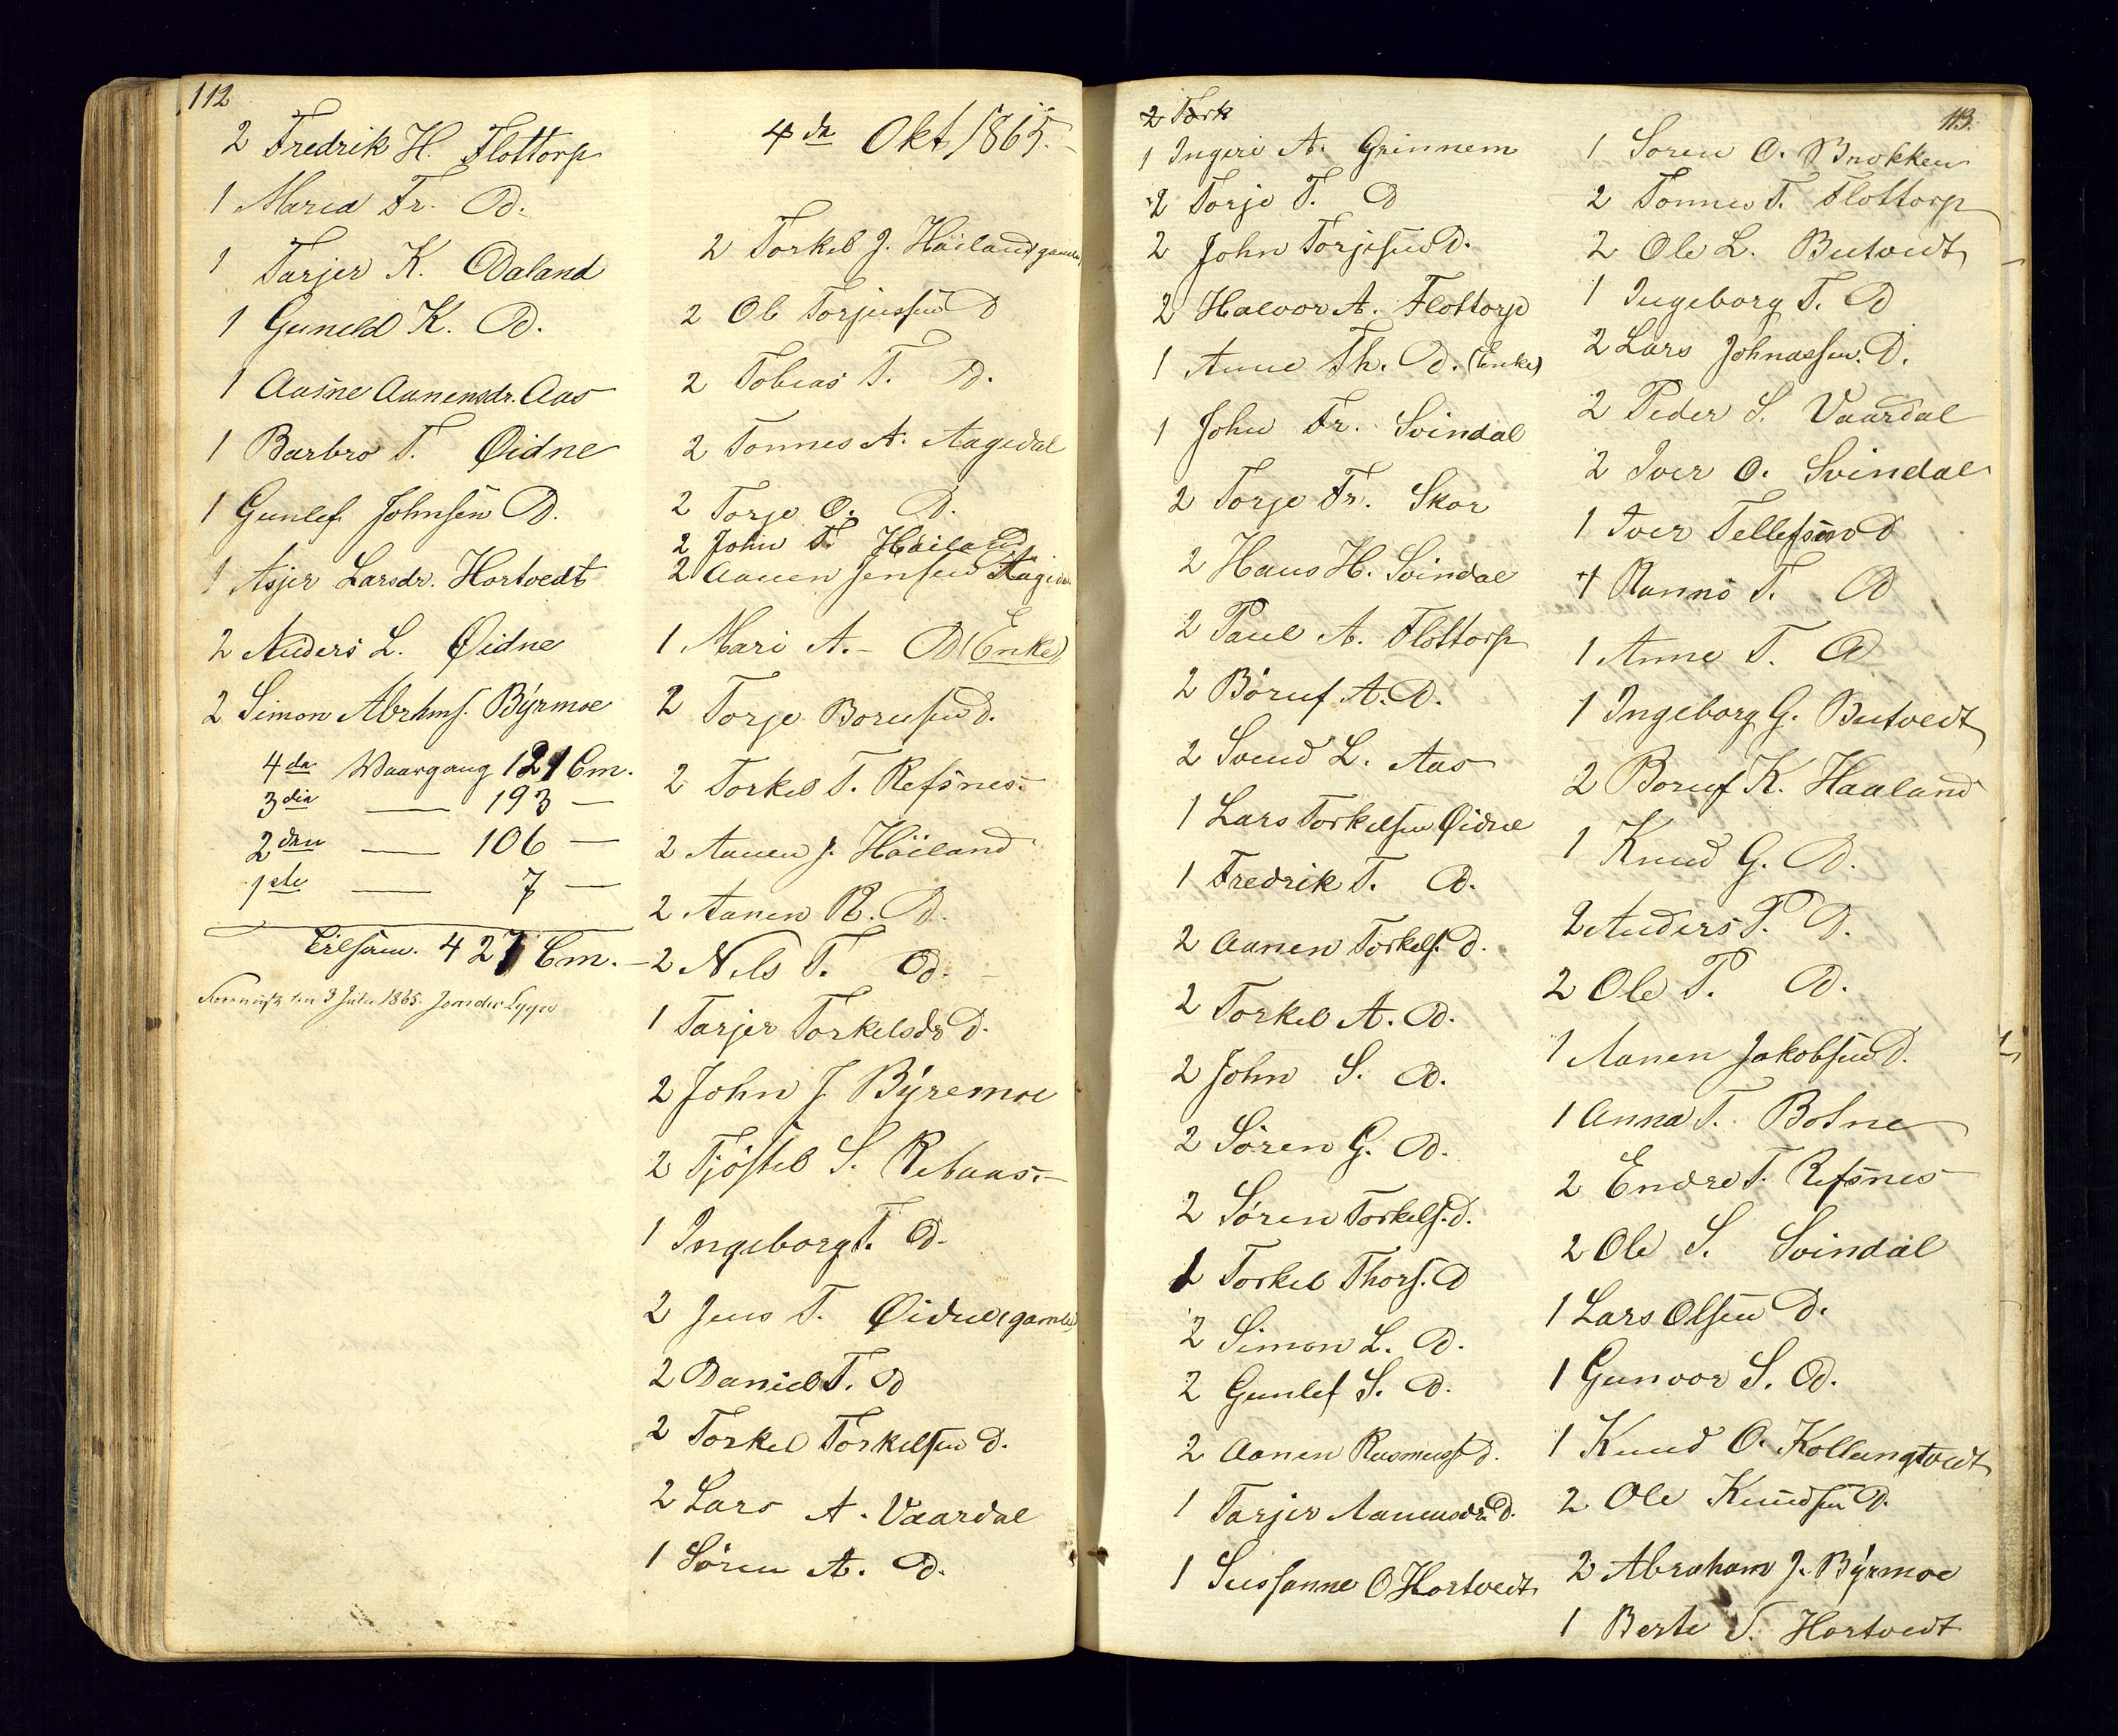 112
2 Fredrik H. Flottorp
1 Maria Fr. D.
1 Tarjer K. Odaland
1 Guneld K. D.
1 Aasne Aanensdr. Aas
1 Barbro T. Øidne
1 Gunlef Johnsen D.
1 Asjer Larsdr. Hortvedt
2 Anders L. Øidne
2 Simon Abrhms. Byrmoe
4de Vaargang 121 Com.
3die — 193 —
2den — 106 —
1ste — 7 —
Tilsam. 427 Com.
den 3 Julii 1865.
4de Okt 1865.
2 Torkel J. Häiland gamle
2 Ole Torjussen D
2 Tobias T. D.
2 Tønnes A. Aagedal
2 Torje O. D.
2 John T. Häiland
2 Aanen Jensen Aagedal
1 Mari A. - D (Enke)
2 Torje Borufsen D.
2 Torkel T. Refsnes.
2 Aanen J. Häiland
2 Aanen R. D.
2 Nils T. D.
1 Tarjer Torkelsdr D.
2 John J Byremoe
2 Tjöstel S. Rebaas.
1 Ingeborg T. D.
2 Jens T. Øidne (gamle)
2 Daniel T. D
2 Torkel Torkelsen D.
2 Lars A. Vaardal
1 Sören A. D.
2 Tork
1 Ingeri A. Grinnem
2 Torje T. D
2 John Torjesen D.
2 Halvor A. Flottorp
1 Anne Th. D. (Enke)
1 John Fr. Svindal
2 Torje Fr. Skor
2 Hans H. Svindal
2 Paul A. Flottorp
2 Böruf A. D.
2 Svend L. Aas
1 Lars Torkelsen Øidne
1 Fredrik T. D.
2 Aanen Torkels. D.
2 Torkel A. D.
2 John S. D.
2 Sören G. D.
2 Sören Torkels. D.
1 Torkel Thors. D
2 Simon L. D.
2 Gunlef S. D.
2 Aanen Rasmuss D.
1 Tarjer Aanensdr D.
1 Sussanne O Hortvedt
113.
1 Soren O. Brokken
2 Tønnes T. Flottorp
2 Ole L. Butvedt
1 Ingeborg T. D
2 Lars Johnassen. D.
2 Peder S. Vaardal
2 Iver O. Svindal
1 Iver Tellefsen D
1 Rannö T. D
1 Anne T. D
1 Ingeborg G. Butvedt
2 Boruf K. Haaland
1 Knud G. D.
2 Anders P. D.
2 Ole P. D.
1 Aanen Jakobsen D.
1 Anna T. Botne
2 Endre T. Refsnes
2 Ole S. Svindal
1 Lars Olsen D.
1 Gunvor S. D.
1 Knud O. Kollungtvedt
2 Ole Knudsen D.
2 Abraham J. Byrmoe
1 Berte S. Hortvedt